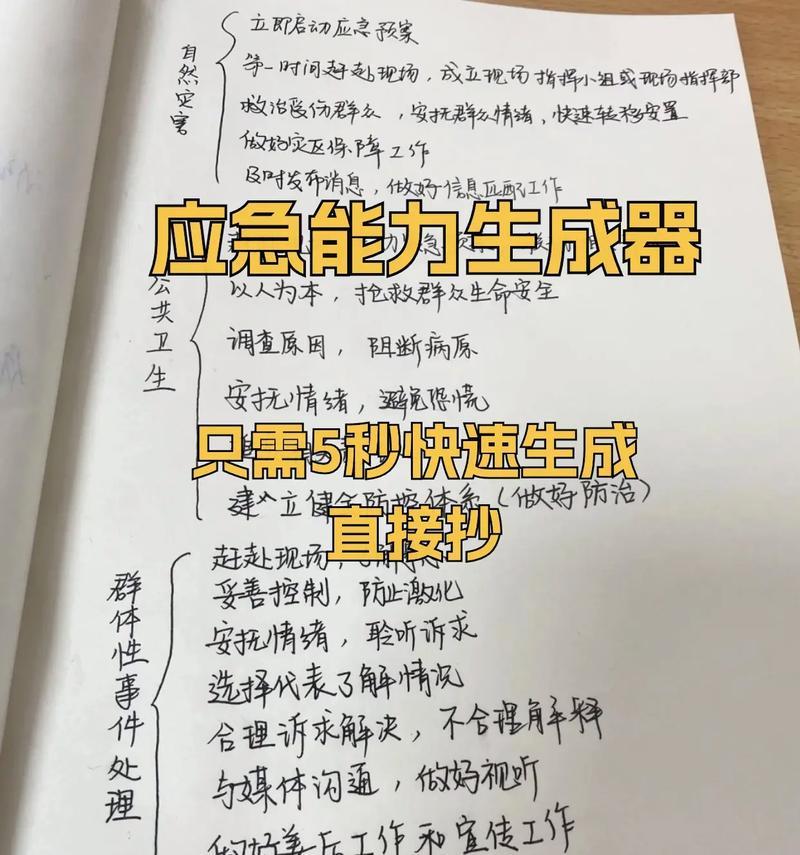 自然灾害
立即启动应急预案
第一时间赶赴现场，成立现场指挥小组或现场指挥部
救治受伤群众，安抚群众情绪，快速转移安置
做好灾区保障工作
及时发布消息，做好信息匹配工作
应急能力生成器
公共卫生
以人为本，抢救群众生命安全
调查原因，阻断病原
安抚情绪，避免恐慌
只需5秒快速生成
建立健全防控体系（做好防治）
直接抄
群体性事件处理
赶赴现场，
妥善控制，防止激化
安抚情绪，聆听诉求
选择代表了解情况
合理诉求解决，不合理解释
与媒体沟通，做好视听
做好善后工作和宣传工作